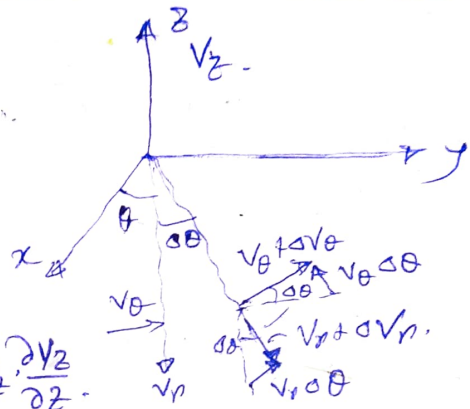 z
V_z.
y
θ
Δθ
x
V_θ+ΔV_θ
V_θ Δθ
Δθ
V_θ
Δθ
V_r+ΔV_r.
∂V_z
z, ∂z.
V_r
V_r Δθ